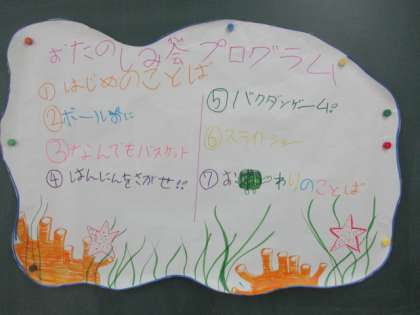 おたのしみ会プログラム
①はじめのことば
②ボールおに
③なんでもバスケット
④はんにんをさがせ!!
⑤バクダンゲーム!
⑥スライドショー
⑦おわりのことば